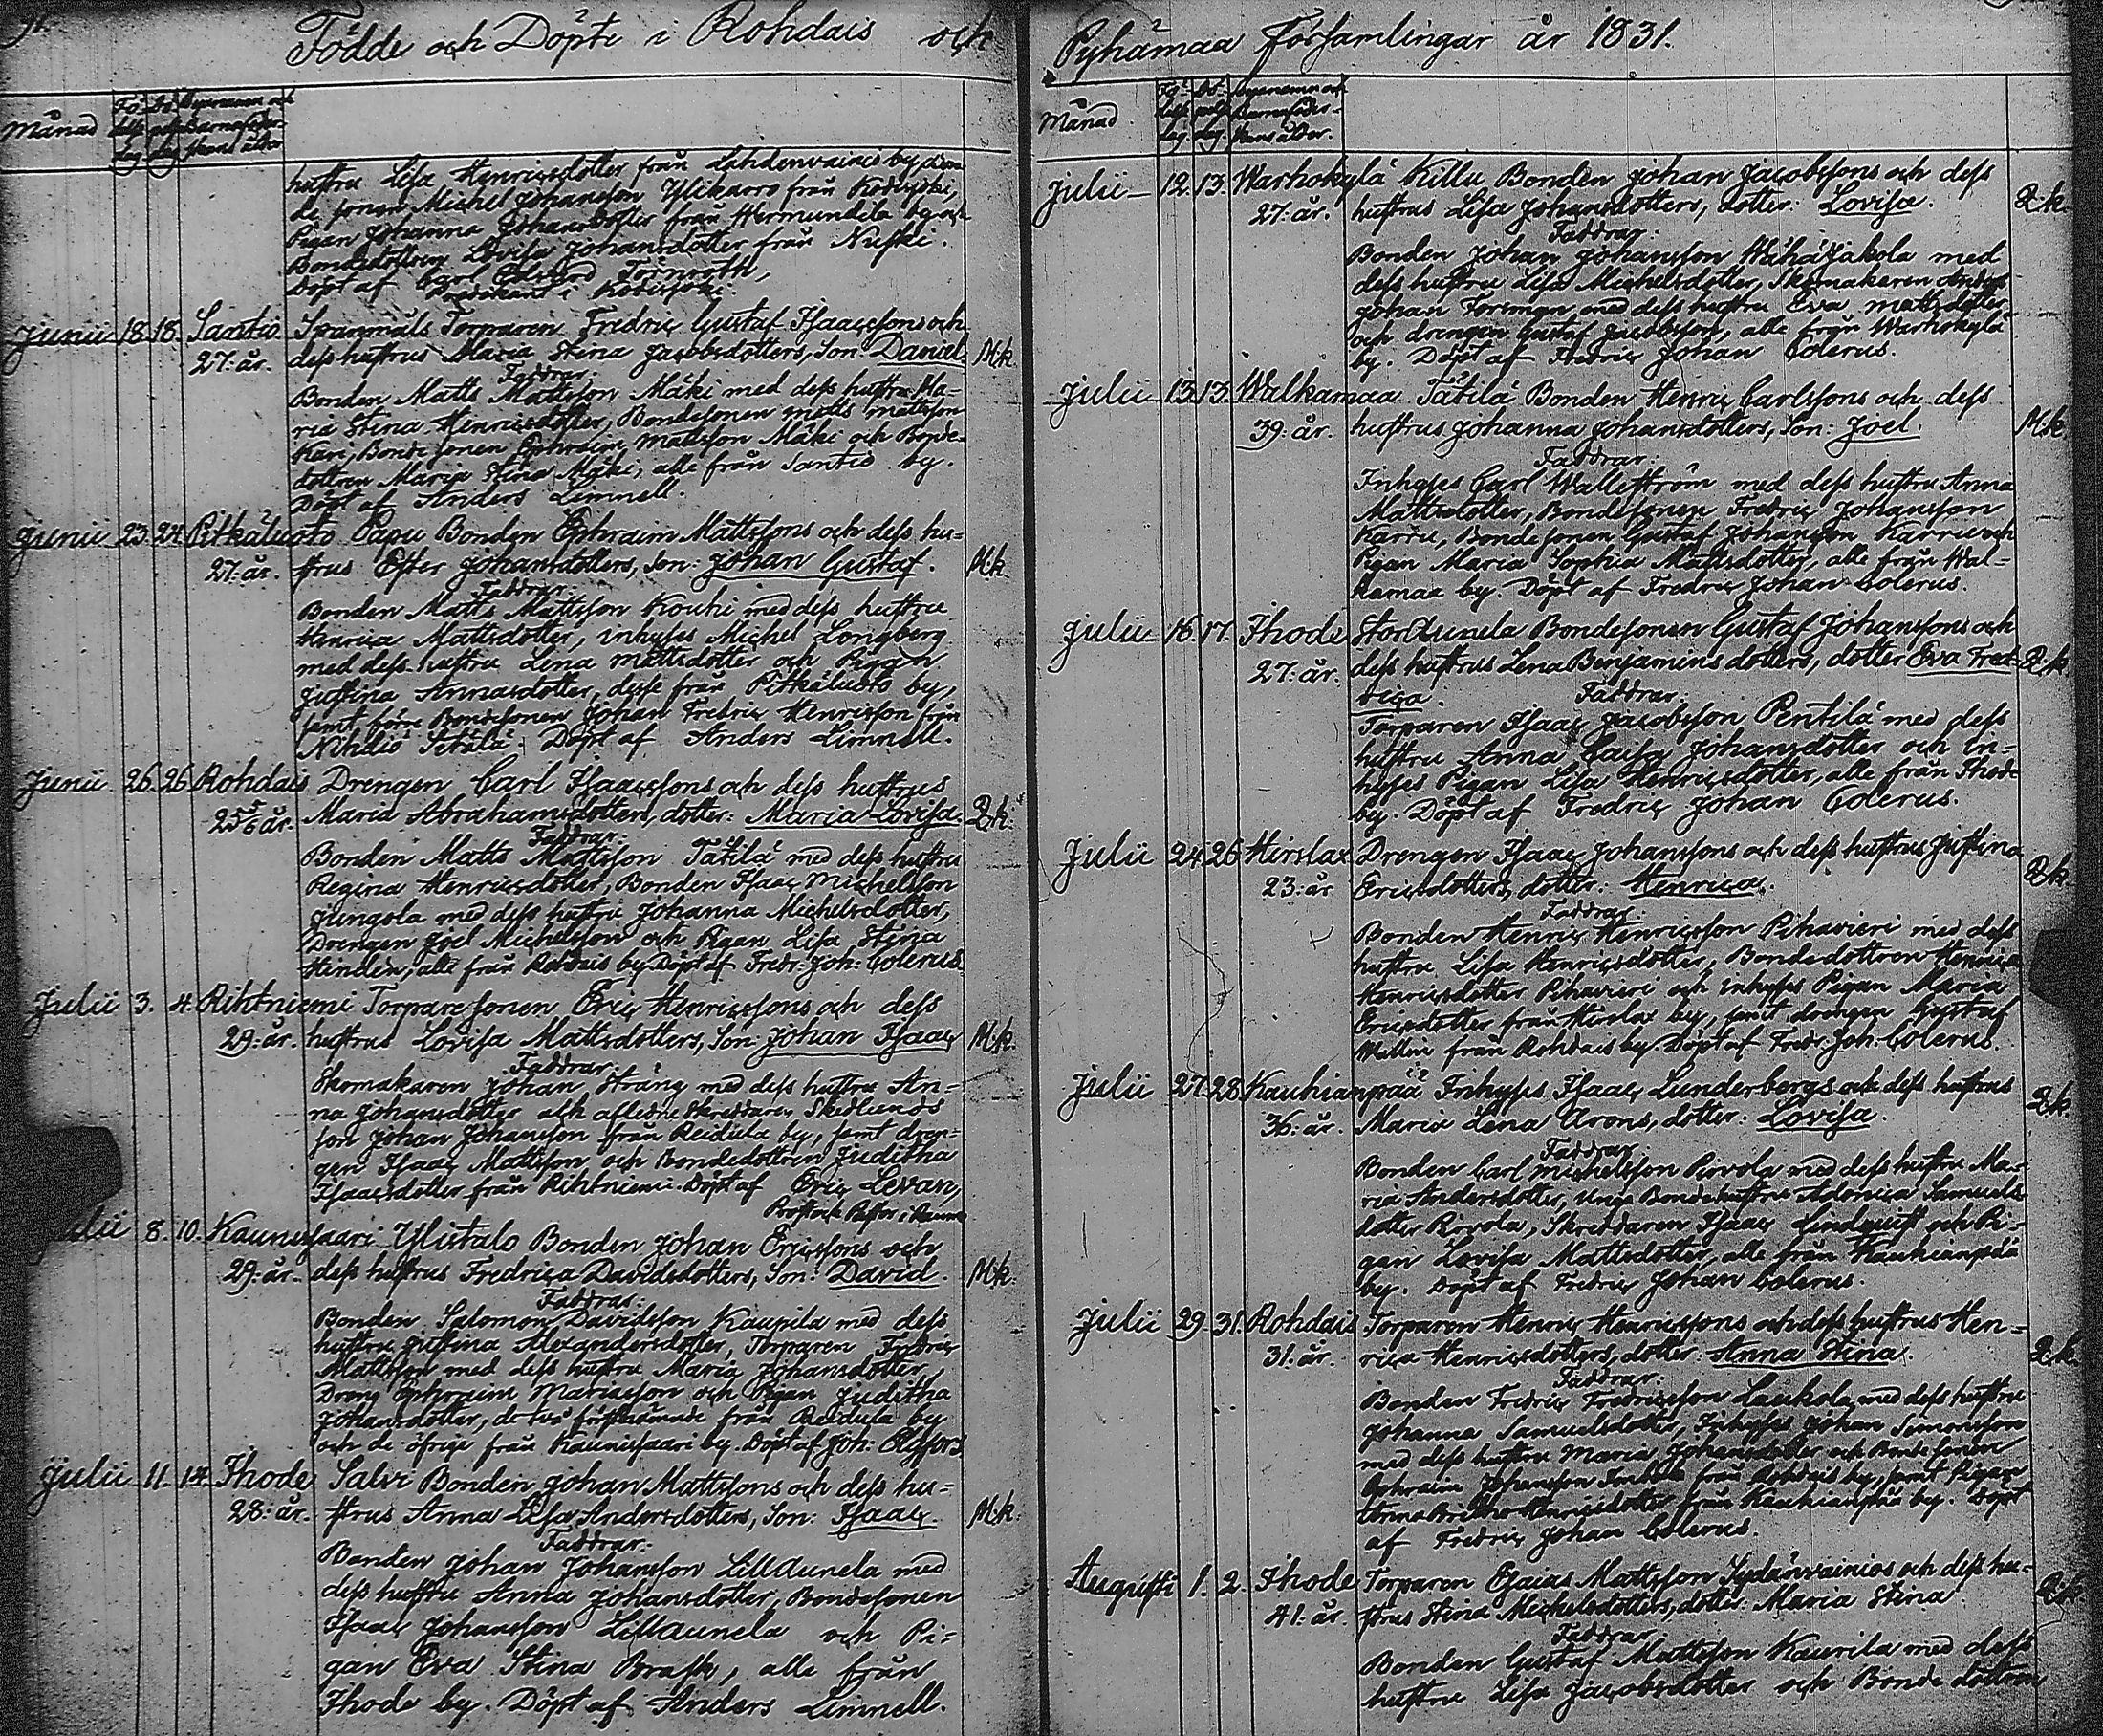 Födde och Döpte i Rohdais och
Månad Fö- delse dag Dö- pelse dag Byanamn och Barnaföder- skans ålder
hustru Lisa Henricsdotter från Lahdenvainio by,
de sonen Michel Johansson Ylikarro från Kodisjoki,
Pigan Johanna Johansdotter från Hermundila by och
Bondedottren Lovisa Johansdotter från Nuski.
Döpt af Carl Edvard Törnroth,
Predikant i Kodisjoki.
Junii 18. 18. Santio Spannmåls Torparen Fredric Gustaf Isaacssons och
27: år. dess hustrus Maria Stina Jacobsdotters, Son: Daniel. M.k.
Faddrar:
Bonden Matts Mattsson Mäki med dess hustru Ma-
ria Stina Henricsdotter, Bondesonen Matts Mattsson
Kari, Bondesonen Ephraim Mattsson Mäki och Bonde-
dottren Maria Stina Mäki, alle från Santio by.
Döpt af Anders Limnell.
Junii 23. 24. Pitkäluoto Papu Bonden Ephraim Mattssons och dess hu-
27: år. strus Ester Johansdotters, Son: Johan Gustaf. M.k
Faddrar:
Bonden Matts Mattsson Kouhi med dess hustru
Henrica Mattsdotter, inhyses Michel Longberg
med dess hustru Lena Mattsdotter och Pigan
Justina Annasdotter, desse från Pitkäluoto by,
samt förre Bondesonen Johan Fredric Henricsson från
Nihdiö Sätälä. Döpt af Anders Limnell.
Junii 26. 26. Rohdais Drengen Carl Isaacssons och dess hustrus
25 5/6 år. Maria Abrahamsdotters, dotter: Maria Lovisa. Q.k.
Faddrar:
Bonden Matts Mattsson Tätilä med dess hustru
Regina Henricsdotter, Bonden Isaac Michelsson
Jungola med dess hustru Johanna Michelsdotter,
Drengen Joel Michelsson och Pigan Lisa Stina
Hinden, alle från Rohdais by. Döpt af Fredr: Joh: Colerus.
Julii 3. 4. Rihtniemi Torparesonen Eric Henricssons och dess
29: år. hustrus Lovisa Mattsdotters, Son: Johan Isaac M.k.
Faddrar:
Skomakaren Johan Sträng med dess hustru An-
na Johansdotter och aflidne Skreddaren Skedlunds
son Johan Johansson från Reidila by, samt dren-
gen Isaac Mattsson och Bondedottren Juditha
Isaacsdotter från Rihtniemi. Döpt af Eric Levan,
Prost och Pastor i Raumo
Julii 8. 10. Kaunissaari Ylistalo Bonden Johan Ericssons och
29: år. dess hustrus Fredrica Davidsdotters, Son: David. M.k.
Faddrar:
Bonden Salomon Davidsson Kaupila med dess
hustru Justina Alexandersdotter, Torparen Fredric
Mattsson med dess hustru Maria Johansdotter,
Dreng Ephraim Mariasson och Pigan Juditha
Johansdotter, de två förstnämnde från Reidula by
och de öfrige från Kaunissaari by. Döpt af Joh: Elgfors
Julii 11. 14. Ihode Salvi Bonden Johan Mattssons och dess hu-
28: år. strus Anna Lisa Andersdotters, Son: Isaac. M.k.
Faddrar:
Bonden Johan Johansson LillAunela med
dess hustru Anna Johansdotter, Bondesonen
Isaac Johansson LillAunela och Pi-
gan Eva Stina Brask, alle från
Ihode by. Döpt af Anders Limnell.
Pyhämaa Församlingar år 1831.
Månad Fö- delse dag Dö- pelse dag Byanamn och Barnaföder- skans ålder.
Julii 12. 13. Warhokylä Killu Bonden Johan Jacobssons och dess
27: år. hustrus Lisa Johansdotters, dotter: Lovisa. Q.k.
Faddrar:
Bonden Johan Johansson WähäJakola med
dess hustru Lisa Michelsdotter, Skomakaren Anders
Johan Forsman med dess hustru Eva Mattsdotter
och drengen Gustaf Jacobsson, alle från Warhokylä
by. Döpt af Fredric Johan Colerus.
Julii 13. 13. Walkamaa Tätilä Bonden Henric Carlssons och dess
39: år. hustrus Johanna Johansdotters, Son: Joel. M.k.
Faddrar:
Inhyses Carl Walleström med dess hustru Anna
Mattsdotter, Bondesonen Fredric Johansson
Karru, Bondesonen Gustaf Johansson Karru och
Pigan Maria Sophia Mattsdotter, alle från Wal-
kamaa by. Döpt af Fredric Johan Colerus.
Julii 16 17. Ihode StorAunela Bondesonen Gustaf Johanssons och
27: år. dess hustrus Lena Benjaminsdotters, dotter Eva Fred- Q.k.
rica.
Faddrar:
Torparen Isaac Jacobsson Pentilä med dess
hustru Anna Caisa Johansdotter och in-
hyses Pigan Lisa Henricsdotter, alle från Ihode
by. Döpt af Fredric Johan Colerus.
Julii 24. 26. Hirslax Drengen Isaac Johanssons och dess hustrus Justina
23: år Ericsdotters, dotter: Henrica. Q.k.
Faddrar:
Bonden Henric Henricsson Pihavieri med dess
hustru Lisa Henricsdotter, Bondedottren Henrica
Henricsdotter Pihavieri och inhyses Pigan Maria
Ericsdotter från Hirslax by, samt drengen Gustaf
Wallin från Rohdais by. Döpt af Fredr. Joh. Colerus.
Julii 27. 28. Kauhianpää Inhyses Isaac Lunderbergs och dess hustrus
36: år. Maria Lena Arons, dotter: Lovisa. Q.k.
Faddrar
Bonden Carl Michelsson Pirvola med dess hustru Ma-
ria Andersdotter, unga Bondehustru Adonica Samuels-
dotter Pirvola, Skreddaren Isaac Lindquist och Pi-
gan Lovisa Mattsdotter, alle från Kauhianpää
by. Döpt af Fredric Johan Colerus.
Julii 29. 31. Rohdais Torparen Henric Henricssons och dess hustrus Hen-
31: år. rica Henricsdotters, dotter: Anna Stina. Q.k.
Faddrar:
Bonden Fredric Fredricsson Laukola med dess hustru
Johanna Samuelsdotter, Inhyses Johan Simonsson
med dess hustru Maria Johansdotter och Bondesonen
Ephraim Johansson från Rohdais by, samt Pigan
Henricsdotter från Kauhianpää by. Döpt
af Fredric Johan Colerus.
Augusti 1. 2. Ihode Torparen Esaias Mattsson Sydänvainios och dess hu-
41: år. strus Stina Michelsdotters, dotter Maria Stina. Q.k.
Faddrar
Bonden Gustaf Mattsson Kaurila med dess
hustru Lisa Jacobsdotter och Bondedottren